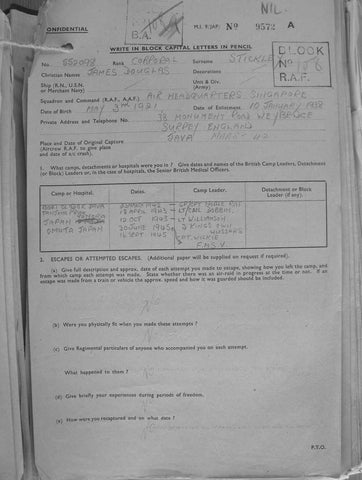 CONFIDENTIAL
NIL.
B.A.
M.I. 9/JAP/ Nº 9572 A
WRITE IN BLOCK CAPITAL LETTERS IN PENCIL
No. Rank CORPORAL Surname
Christian Names JAMES DOUGLAS Decorations
Ship (R.N., U.S.N. or Merchant Navy) Unit & Div. (Army)
Squadron and Command (R.A.F., A.A.F.) AIR HEADQUARTERS SINGAPORE
Date of Birth MAY 3RD 1921 Date of Enlistment 10 JANUARY 1938
Private Address and Telephone No. 38 MONUMENT ROAD WEYBRIDGE
SURREY ENGLAND
Place and Date of Original Capture JAVA MARCH 42
(Aircrew R.A.F. to give place
and date of a/c crash).
BLOCK
Nº 108
R.A.F.
1. What camps, detachments or hospitals were you in? Give dates and names of the British Camp Leaders, Detachment
(or Block) Leaders or, in case of the hospitals, the Senior British Medical Officers.
Camp or Hospital. Dates. Camp Leader. Detachment or Block Leader (if any).
JAPAN 10 OCT 1943 LT WILLIAMSON
OMUTA JAPAN 20 JUNE 1945 KINGS OWN
16 SEPT 1945 HUSSARS
CPT. WILKIE
F.M.S.V.
2. ESCAPES OR ATTEMPTED ESCAPES. (Additional paper will be supplied on request if required).
(a) Give full description and approx. date of each attempt you made to escape, showing how you left the camp, and
from which camp each attempt was made. State whether there was an air-raid in progress at the time or not. If an
escape was made from a train or vehicle the approx. speed and how it was guarded should be included.
(b) Were you physically fit when you made these attempts?
(c) Give Regimental particulars of anyone who accompanied you on each attempt.
What happened to them?
(d) Give briefly your experiences during periods of freedom.
(e) How were you recaptured and on what date?
P.T.O.